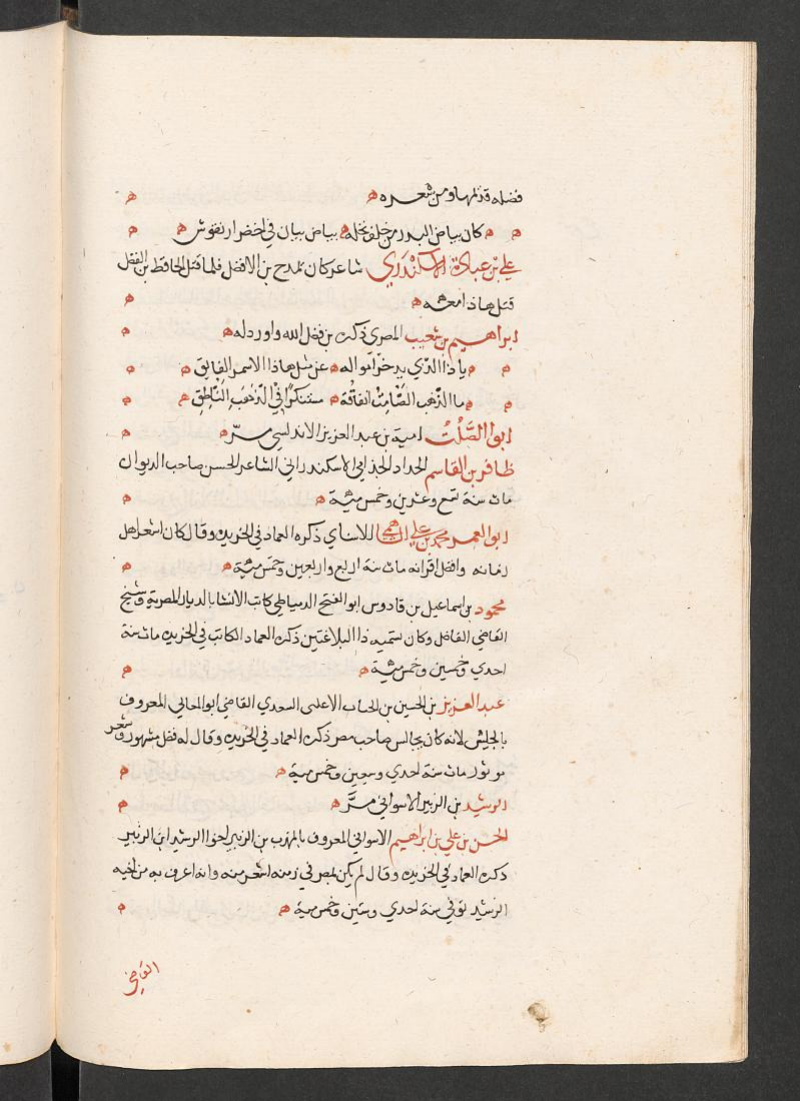 فضله قدلهاومن شعره ه ه
ه ه كان بياض البدر من خلف نخله ه بياض بيان في اخضرار نقوش ه ه
علي بن عبادة الاسكندري شاعر كان يمدح بن الافضل فلما قتل الحافظ بن الفضل
قتل هاذا معه ه ه
ابراهيم بن شعيب المصري ذكره بن فضل الله واورد له ه ه
ه ه ياذا الذي يدخر امواله ه عن مثل هاذا الاسمر الفايق ه ه
ه ه ما الذهب الصامت انفاقه ه مستنكرا في الذهب الناطق ه ه
ابو الصلت امية بن عبد العزيز الاندلسي مر ه ه
ظافر بن القاسم الحداد الجذامي الاسكندراني الشاعر المحسن صاحب الديوان
مات سنة تسع وعشرين وخمس مئية ه ه
ابو الغمر محمد بن علي الهاشمي اللاسناي ذكره العماد في الخريده وقال كان اشعر اهل
زمانه وافضل اقرانه مات سنة اربع واربعين وخمس مئية ه ه
محمود بن اسماعيل بن قادوس ابو الفتح الدمياطي كاتب الانشا بالديار المصرية وشيخ
القاضي الفاضل وكان يسميه ذا البلاغتين ذكره العماد الكاتب في الخريده مات سنة
احدي وخمسين وخمس مئية ه ه
عبد العزيز بن الحسين بن الحباب الاغلبي السعدي القاضي ابو المعالي المعروف
بالجليس لانه كان يجالس صاحب مصر ذكره العماد في الخريده وقال له فضل مشهور وشعر
موثور مات سنة احدي وستين وخمس مية ه ه
الرشيد بن الزبير الاسواني مر ه ه
الحسن بن علي بن ابراهيم الاسواني المعروف بالمهذب بن الزبير اخوا الرشيد ابن الزبير
ذكره العماد في الخريده وقال لم يكن بمصر في زمنه اشعر منه وانه اعرف به من اخيه
الرشيد توفي سنة احدي وستين وخمس مية ه ه
القاضي